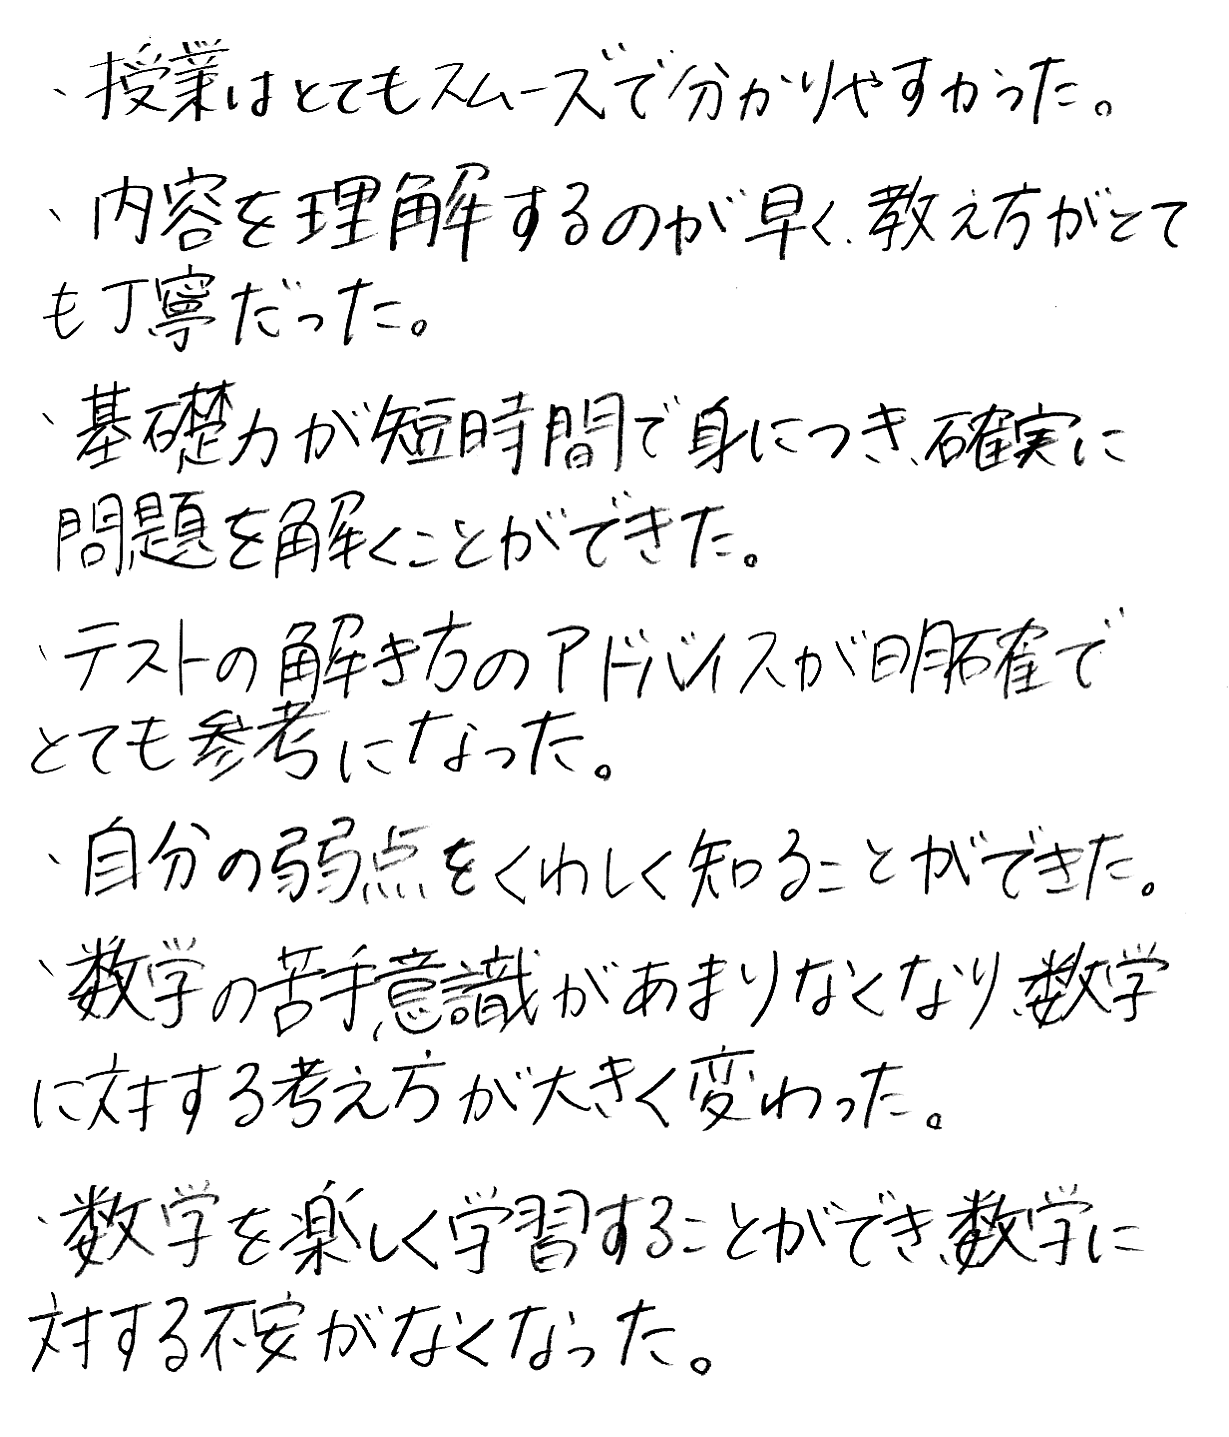 、授業はとてもスムーズで分かりやすかった。
、内容を理解するのが早く、教え方がとて
も丁寧だった。
、基礎力が短時間で身につき、確実に
問題を解くことができた。
、テストの解き方のアドバイスが明確で
とても参考になった。
、自分の弱点をくわしく知ることができた。
、数学の苦手意識があまりなくなり、数学
に対する考え方が大きく変わった。
、数学を楽しく学習することができ、数学に
対する不安がなくなった。